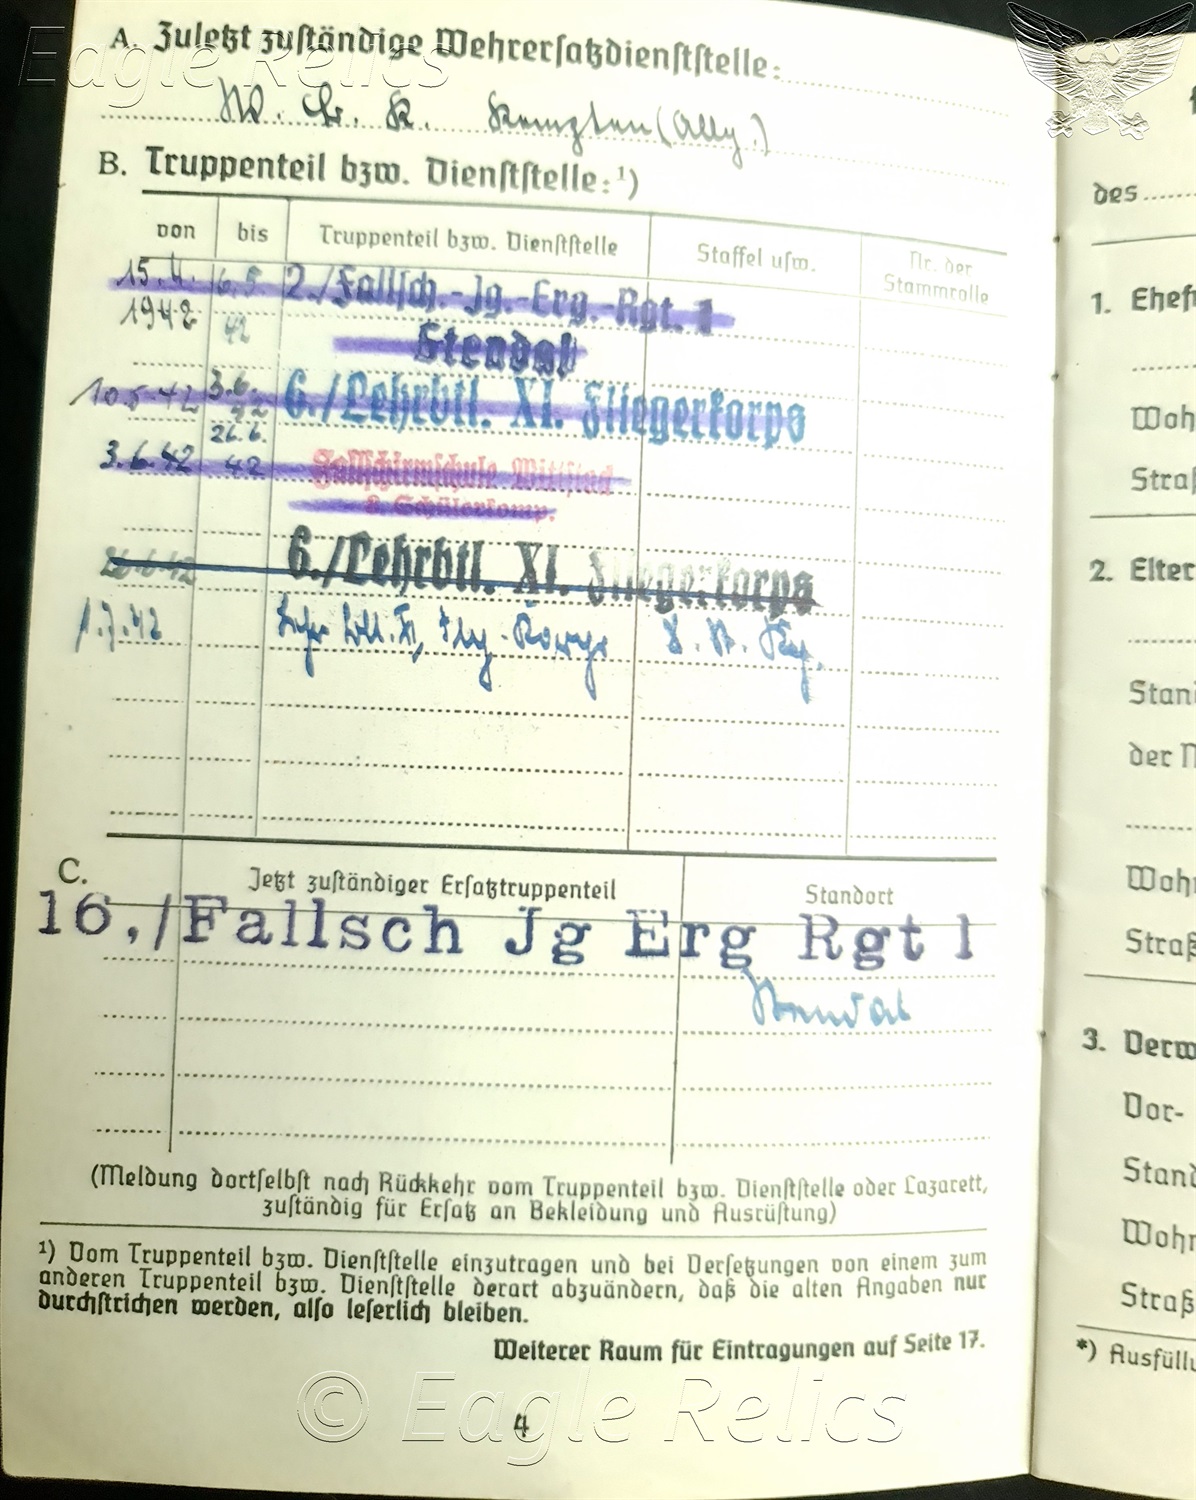 Eagle Relics
A. Zuletzt zuständige Wehrersatzdienststelle:
Kempten (Allg.)
B. Truppenteil bzw. Dienststelle: ¹)
von bis Truppenteil bzw. Dienststelle Staffel usw. Nr. der Stammrolle
15.4. 6.5 2./Fallsch.-Jg.-Erg.-Rgt. 1
1942 42 Stendal
10.5.42 3.6. 42 6./Lehrbtl. XI. Fliegerkorps
3.6.42 26.6. 42 Fallschirmschule Wittstock
8. Schülerkomp.
26.6.42 6./Lehrbtl. XI. Fliegerkorps
1.7.42 Lehr Btl. XI, Flieg.-Korps
C. Jetzt zuständiger Ersatztruppenteil Standort
16./Fallsch Jg Erg Rgt 1
Stendal
(Meldung dortselbst nach Rückkehr vom Truppenteil bzw. Dienststelle oder Lazarett,
zuständig für Ersatz an Bekleidung und Ausrüstung)
¹) Vom Truppenteil bzw. Dienststelle einzutragen und bei Versetzungen von einem zum
anderen Truppenteil bzw. Dienststelle derart abzuändern, daß die alten Angaben nur
durchstrichen werden, also leserlich bleiben.
Weiterer Raum für Eintragungen auf Seite 17.
4
© Eagle Relics
des
1. Ehef
Woh
Straß
2. Elter
Stan
der
Woh
Straß
3. Verw
Vor-
Stand
Wohn
Straß
*) Ausfüllu